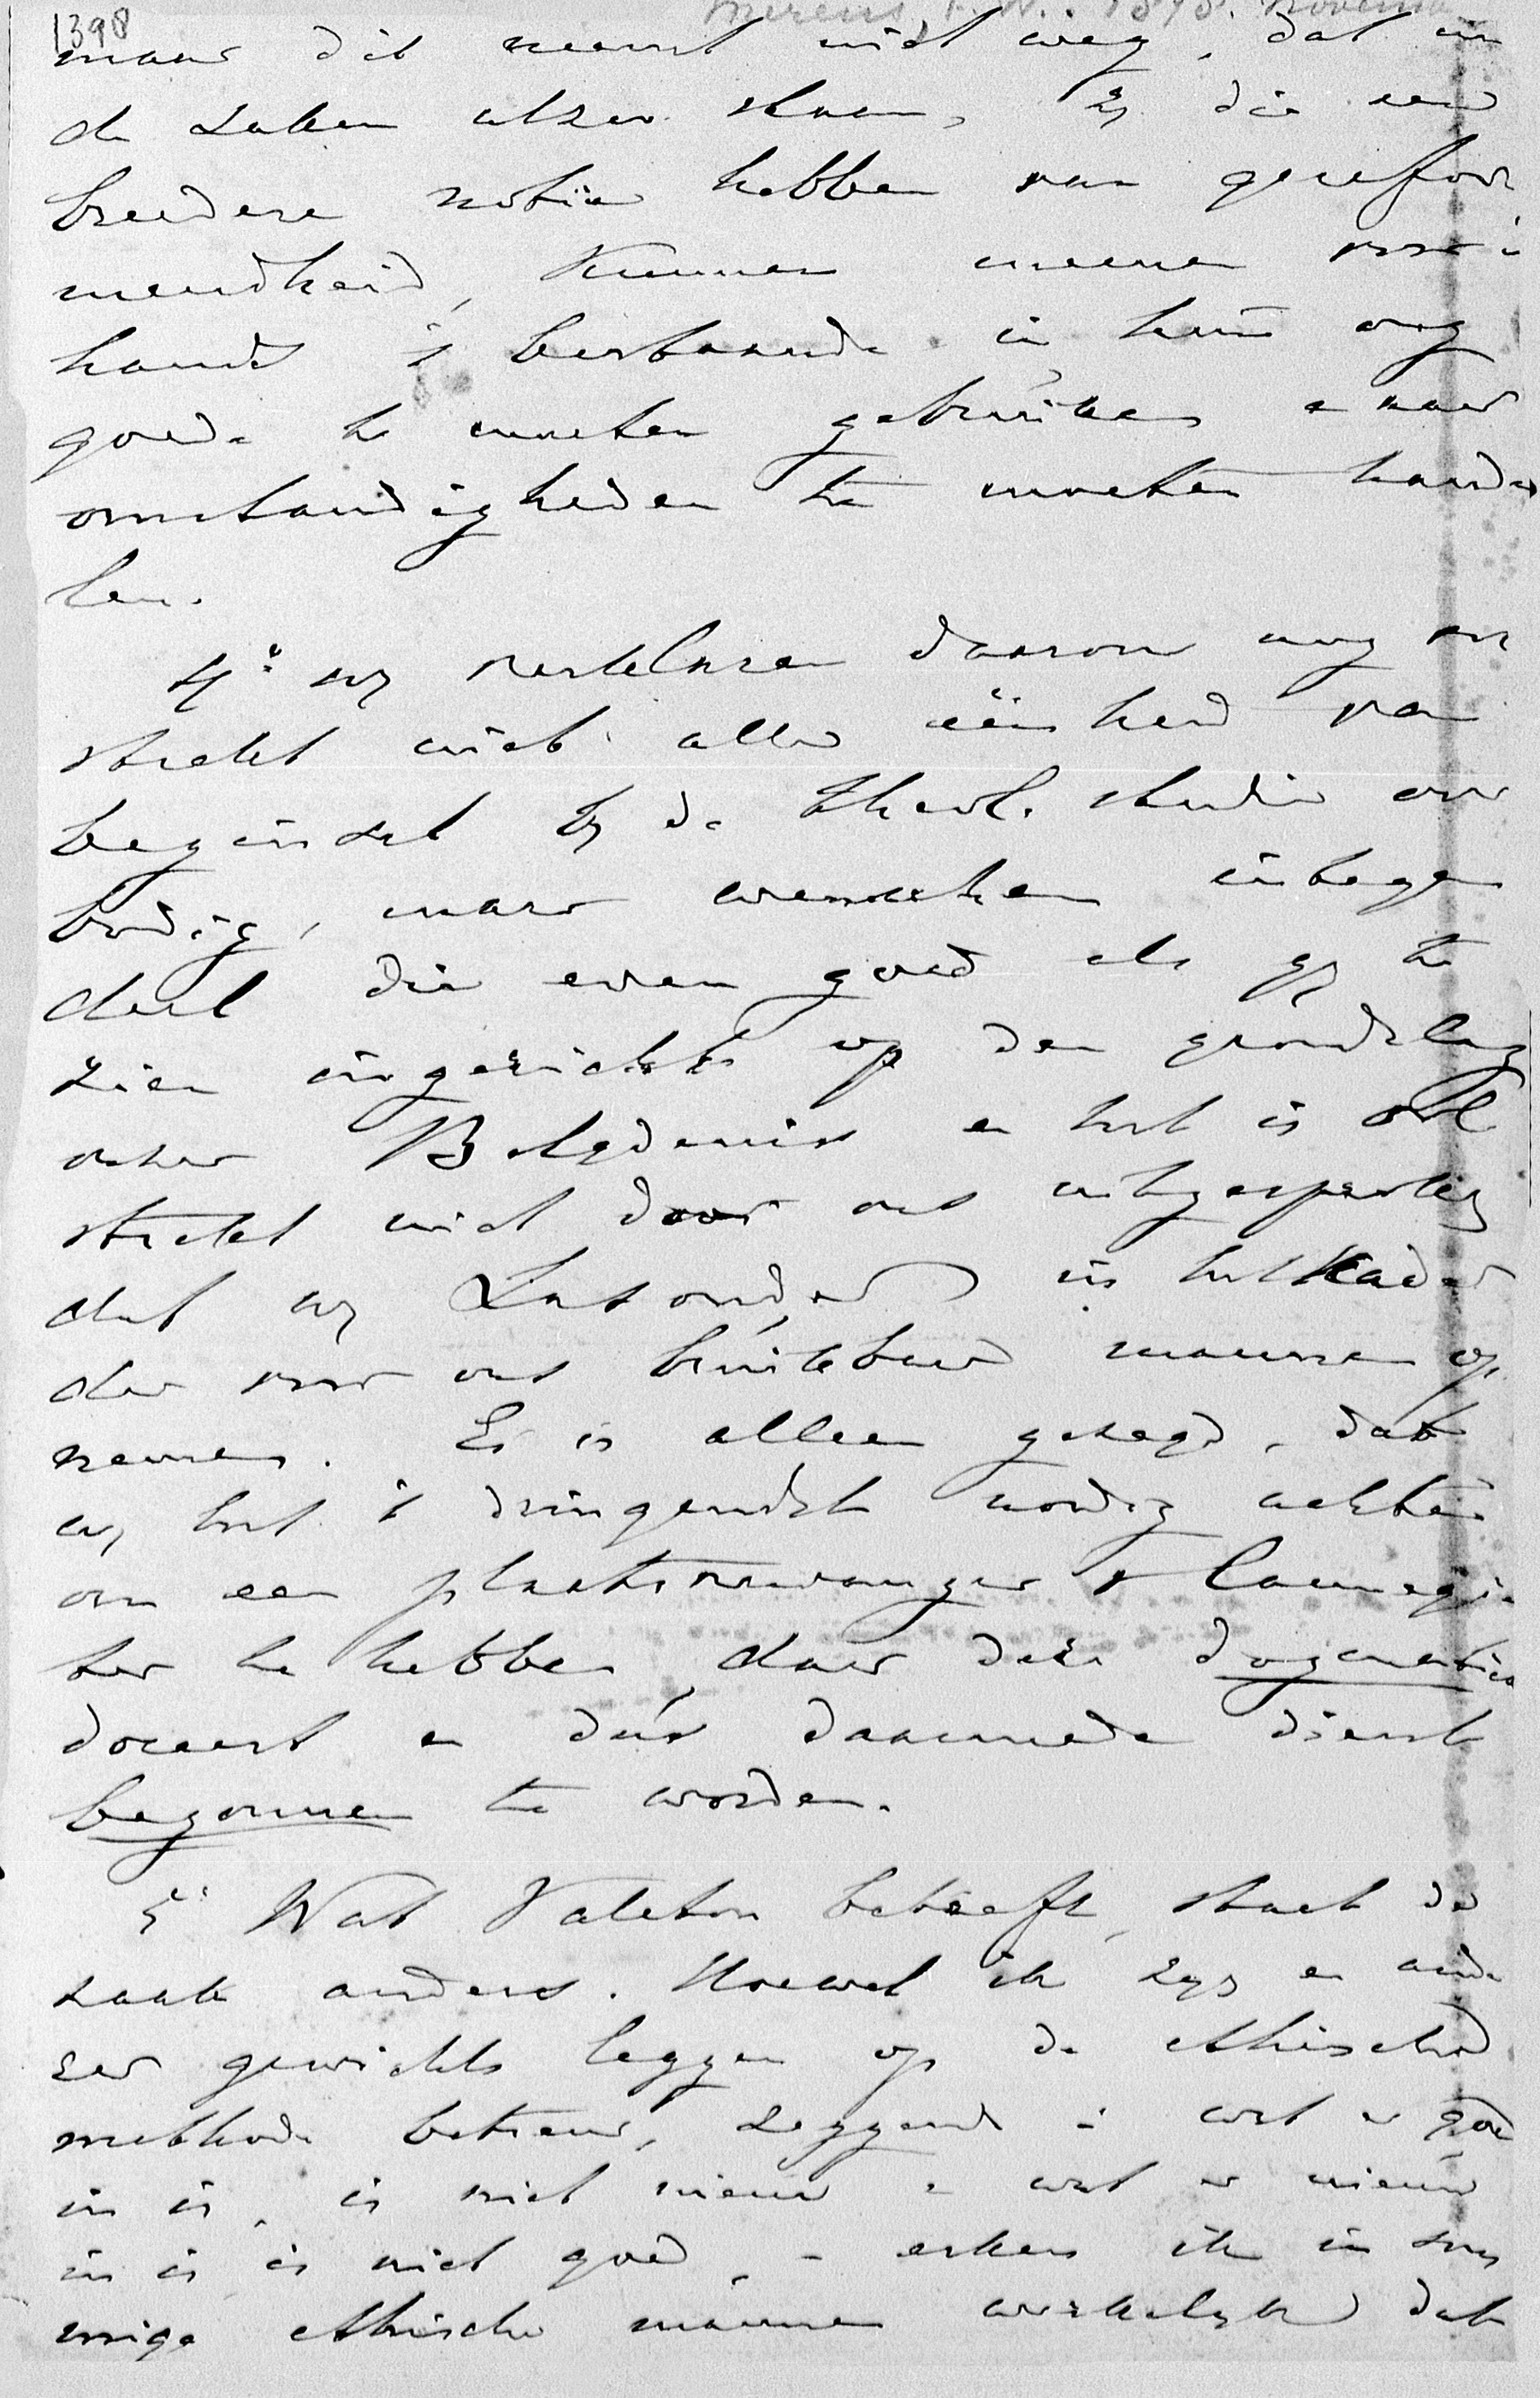 1398
maar dit neemt niet weg, dat in
de zaken alzoo staan, zij die een
breedere notie hebben van gerefor
meendheid, kunnen meenen voor i
hands 't bestaande in hun oog
goede te moeten gebruiken en naar
omstandigheden te moeten hande
len.
4° wij verklaren daarom nog vol
strekt niet alle eenheid van
beginsel bij de theol. studie over
bodig, maar wenschen integen
deel die even goed als gij te
zien ingericht op den grondslag
onzer Belijdenis en het is vol
strekt niet door ons uitgesproken
dat wij Zat onder in het Kader
der voor ons bruikbare mannen op
nemen. Er is alleen gezegd, dat
wij het 't dringendst noodig achten
om een plaatsvervanger v Cannegie
ter te hebben daar deze dogmatica
doceert en dus daarmede dient
begonnen te worden.
5° Wat Valeton betreft, staat de
zaak anders. Hoewel ik zijn en
zer gewicht leggen op de ethische
methode betreur, zeggend: wat er goed
in is, is niet nieuw en wat er nieuw
in is is niet goed, - erken ik in som
mige ethische mannen werkelijk dat